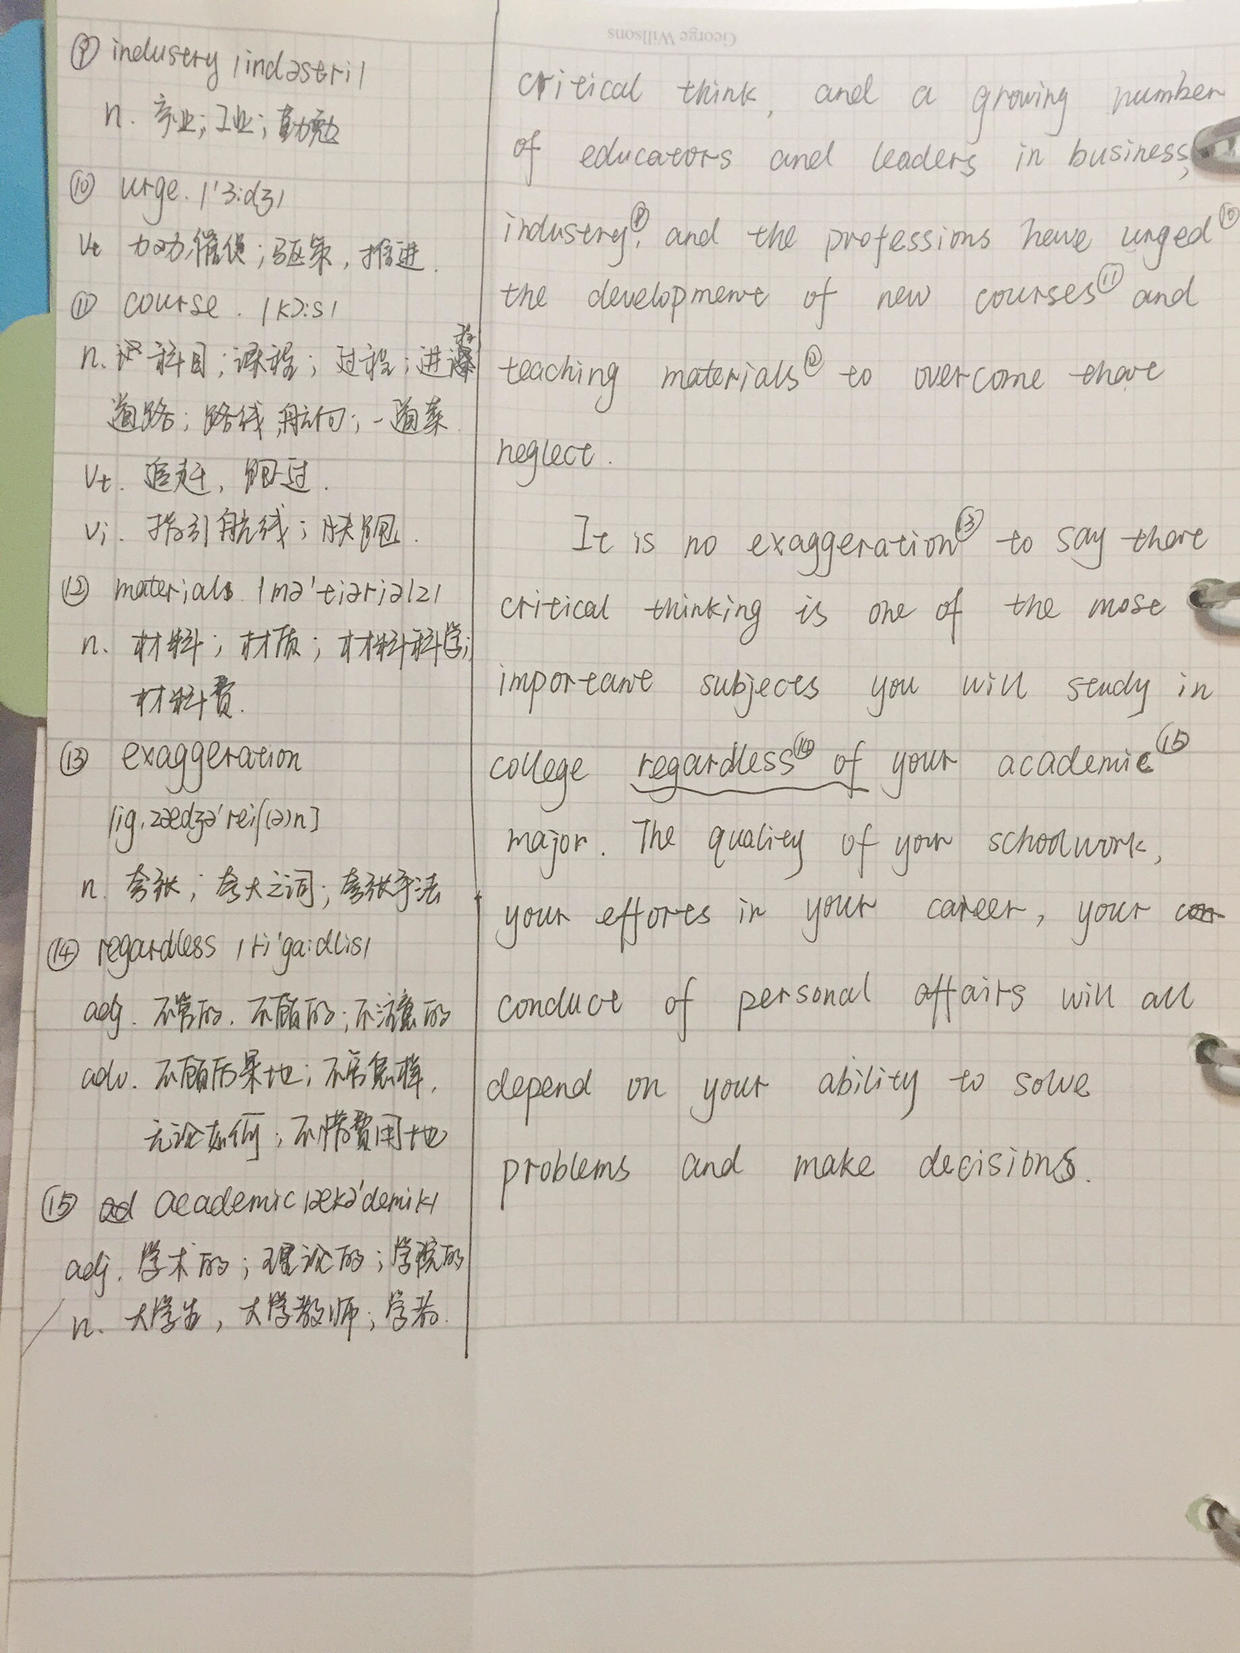 George Willsons
⑨ industry /indəstri/
n. 产业; 工业; 勤勉
⑩ urge. /'ɜ:dʒ/
vt 力劝, 催促; 驱策, 推进.
⑪ course. /kɔ:s/
n. 科目; 课程; 过程; 进程
道路; 路线, 航向; 一道菜.
vt. 追赶, 跑过.
vi. 指引航线; 快跑.
⑫ materials /mə'tiəriəlz/
n. 材料; 材质; 材料科学;
材料费.
⑬ exaggeration
/ig,zædʒə'reiʃ(ə)n]
n. 夸张; 夸大之词; 夸张手法
⑭ regardless /ri'ga:dlis/
adj. 不管的, 不顾的; 不注意的
adv. 不顾后果地; 不管怎样,
无论如何; 不惜费用地
⑮ ad academic /ækə'demik/
adj. 学术的; 理论的; 学院的
n. 大学生, 大学教师; 学者.
critical think, and a growing number
of educators and leaders in business,
industry⑨, and the professions have urged⑩
the development of new courses⑪ and
teaching materials⑫ to overcome that
neglect.
It is no exaggeration⑬ to say that
critical thinking is one of the most
important subjects you will study in
college regardless⑭ of your academic⑮
major. The quality of your schoolwork,
your efforts in your career, your con
conduct of personal affairs will all
depend on your ability to solve
problems and make decisions.